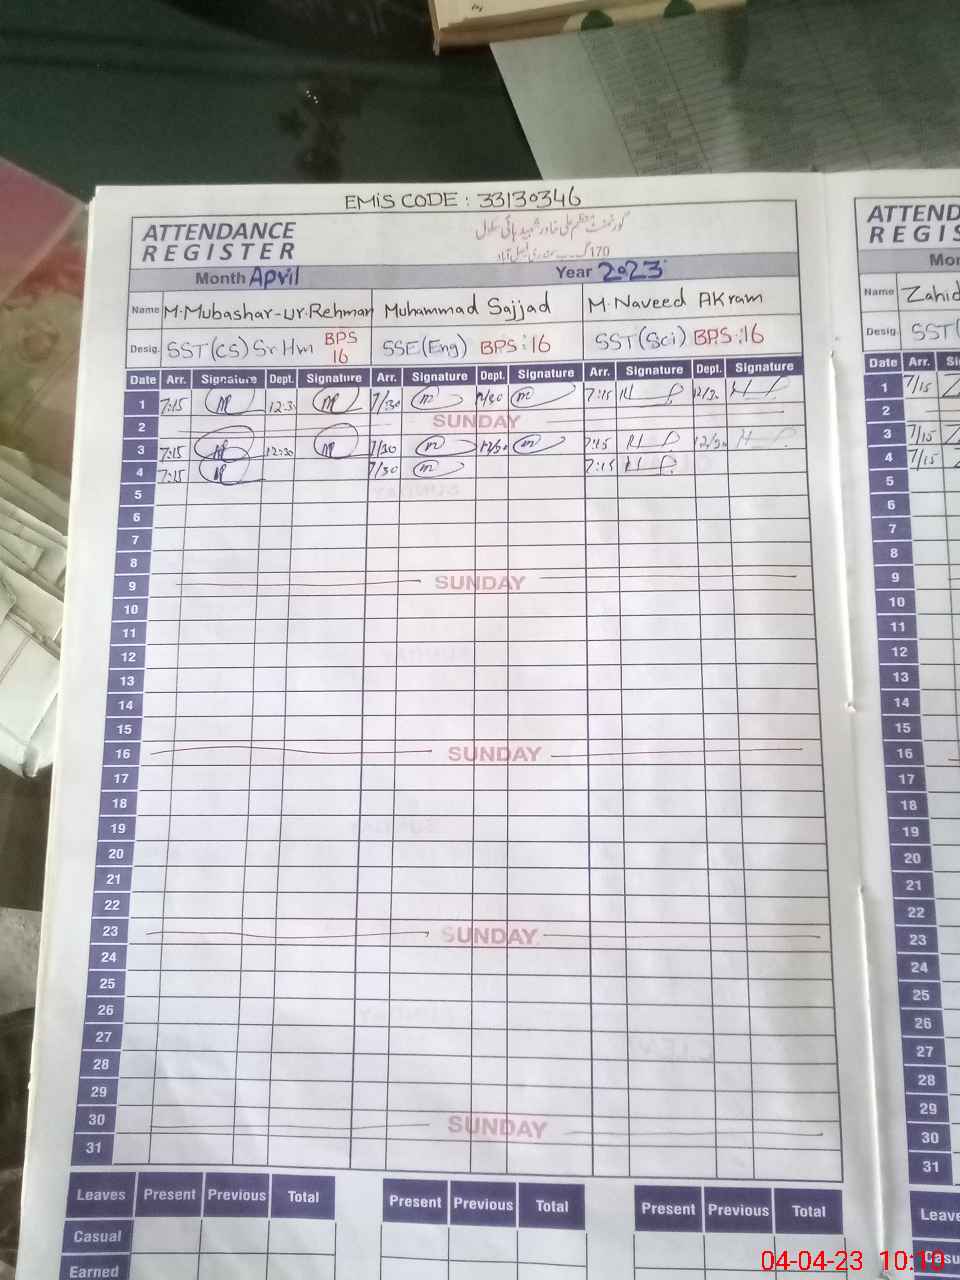 EMIS CODE : 33130346
ATTENDANCE
REGISTER
گورنمنٹ معظم علی خاور شہید ہائی سکول
170 گ۔ب سمندری فیصل آباد
Month April Year 2023
Name M. Mubashar-ur-Rehman Muhammad Sajjad M. Naveed Akram
Desig. SST(CS) Sr Hm BPS 16 SSE(Eng) BPS:16 SST(Sci) BPS:16
Date Arr. Signature Dept. Signature Arr. Signature Dept. Signature Arr. Signature Dept. Signature
1 7:15 12:30 7/30 12/30 7:15 12/30
2 SUNDAY
3 7:15 12:30 7/30 12/30 7:15 12/30
4 7:15 7/30 7:15
5
6
7
8
9 SUNDAY
10
11
12
13
14
15
16 SUNDAY
17
18
19
20
21
22
23 SUNDAY
24
25
26
27
28
29
30 SUNDAY
31
Leaves Present Previous Total Present Previous Total Present Previous Total
Casual
Earned
ATTEND
REGIS
Mon
Name Zahid
Desig. SST(
Date Arr. Si
1 7/15
2
3 7/15
4 7/15
5
6
7
8
9
10
11
12
13
14
15
16
17
18
19
20
21
22
23
24
25
26
27
28
29
30
31
Leave
Casu
04-04-23 10:10